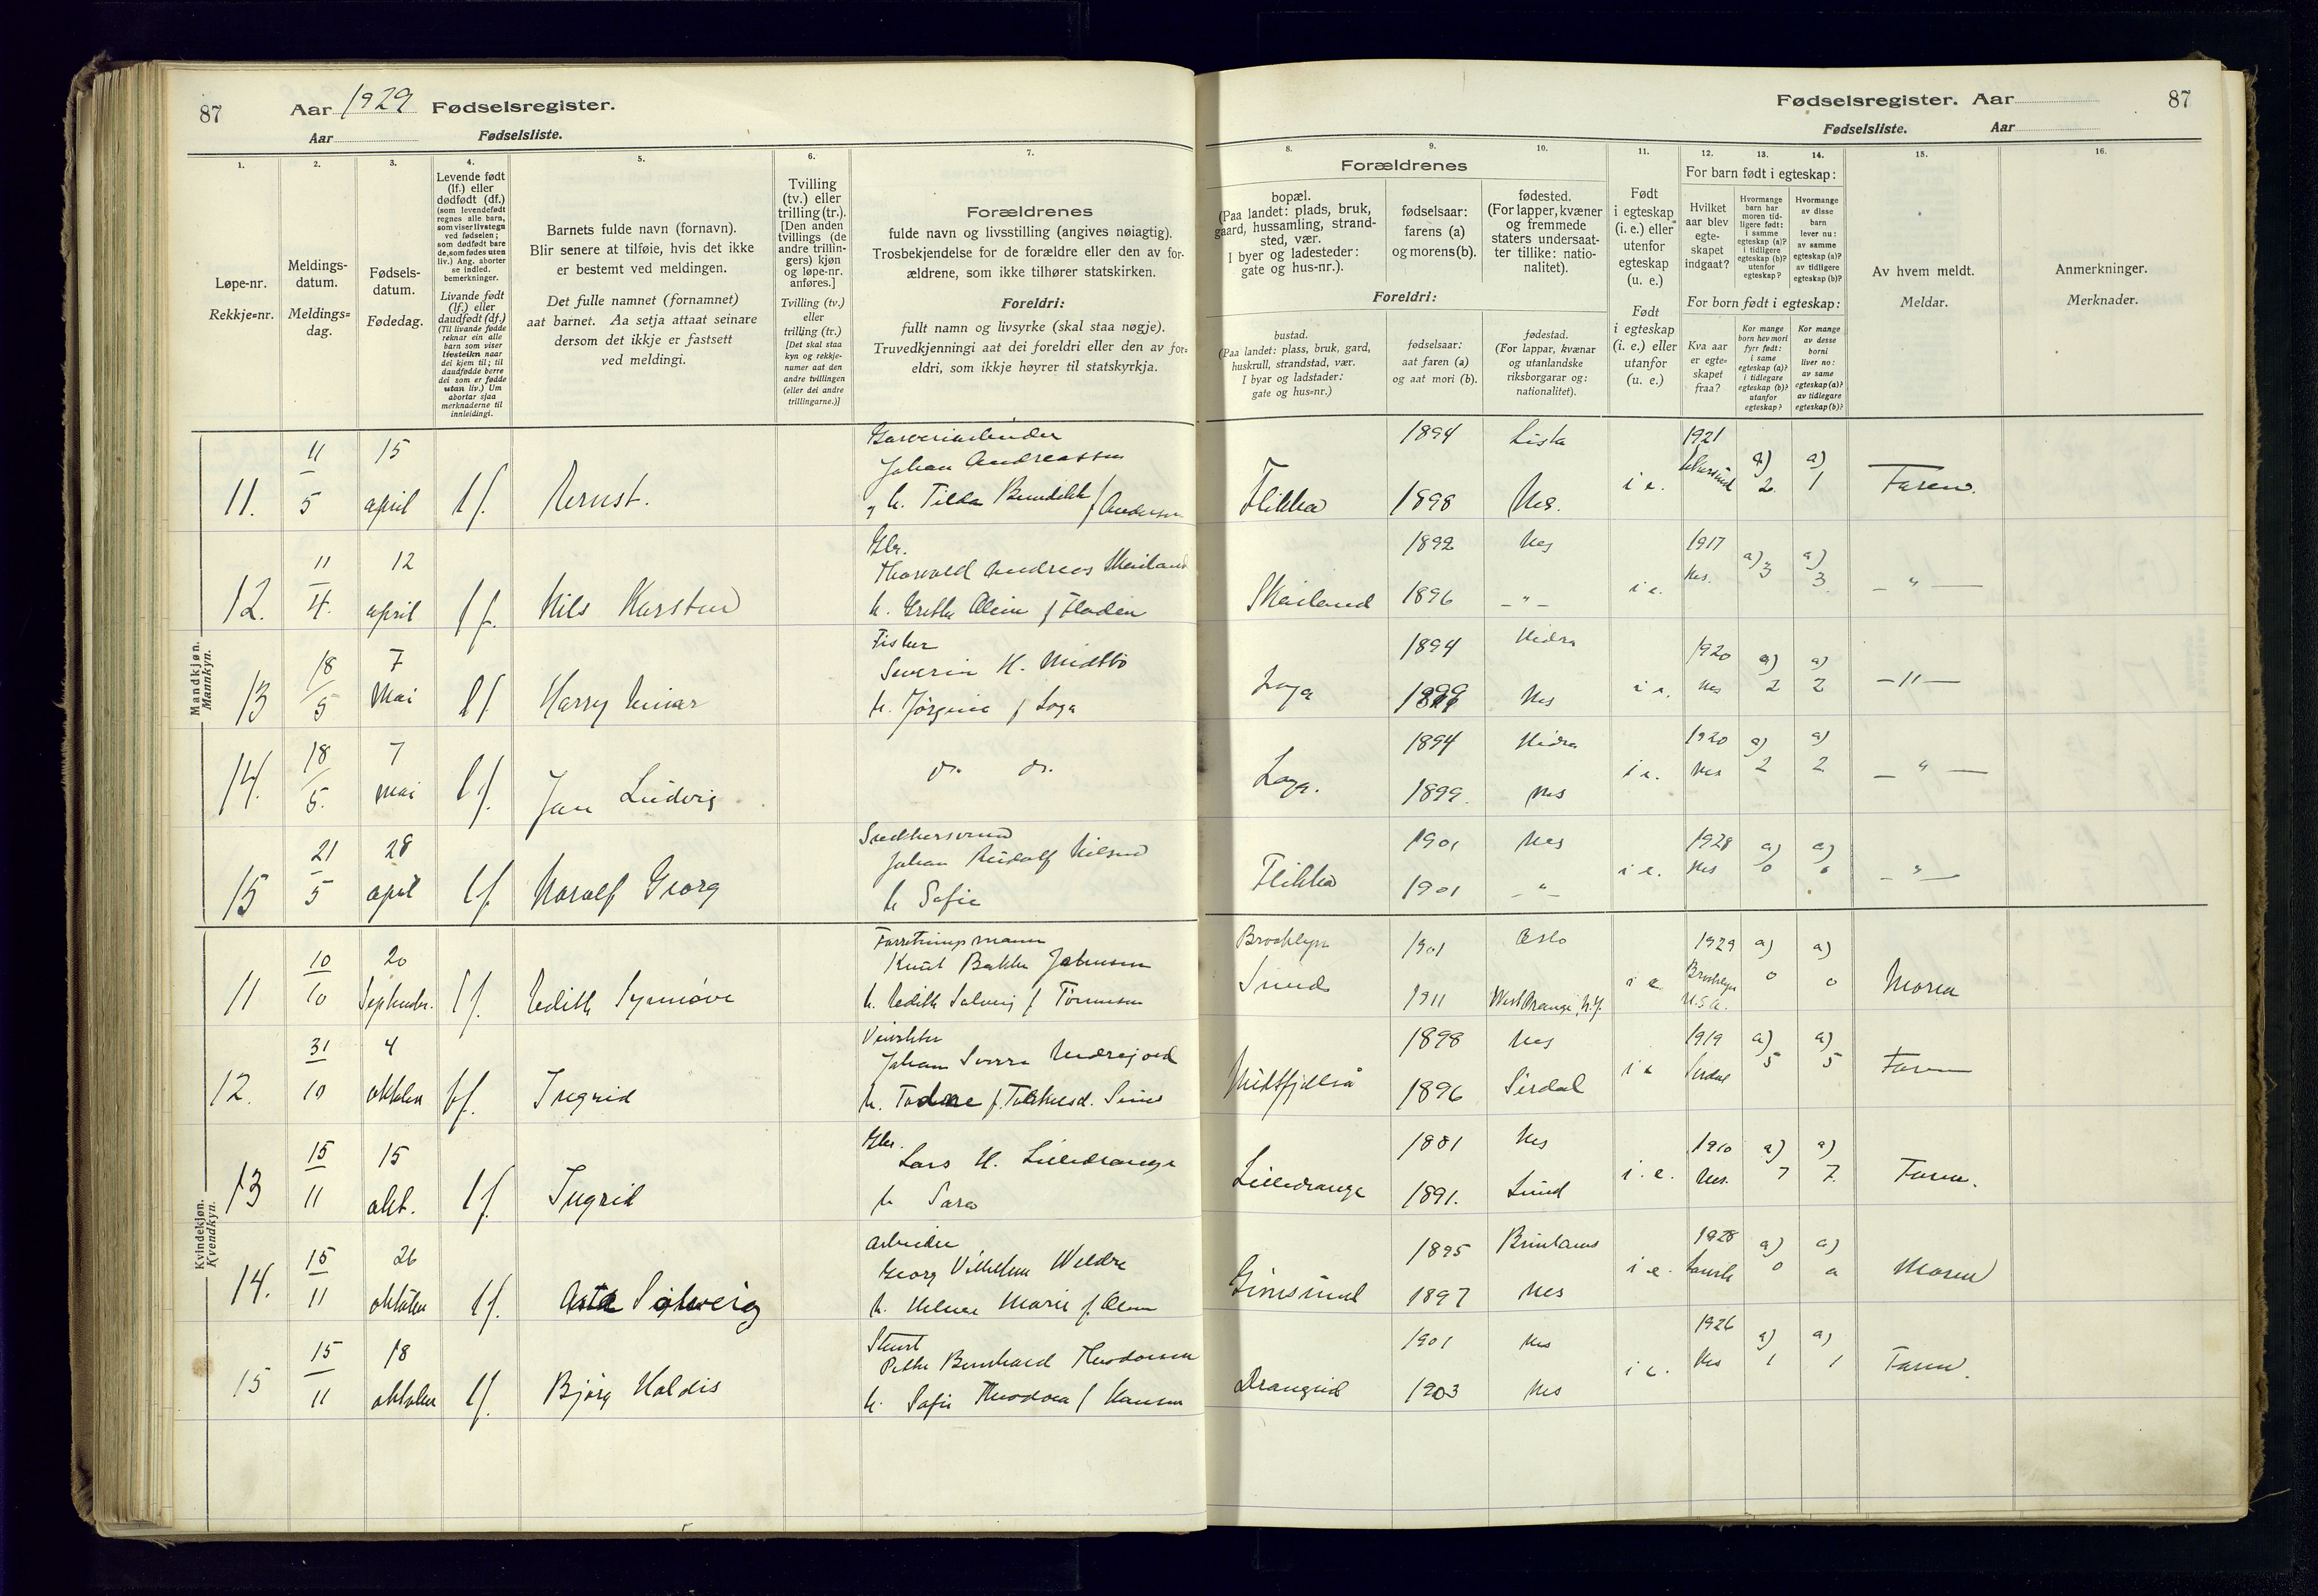 87 Aar 1929 Fødselsregister.
Aar Fødselsliste.
1.
2.
3.
4.
5.
6.
7.
Løpe-nr.
Rekkje-nr.
Meldings-
datum.
Meldings-
dag.
Fødsels-
datum.
Fødedag.
Levende født
(lf.) eller
dødfødt (df.)
(som levendefødt
regnes alle barn,
som viser livstegn
ved fødselen;
som dødfødt bare
de, som fødes uten
liv.) Ang. aborter
se indled.
bemerkninger.
Livande født
(lf.) eller
daudfødt (df.)
(Til livande fødde
reknar ein alle
barn som viser
livsteikn naar
dei kjem til; til
daudfødde berre
dei som er fødde
utan liv.) Um
abortar sjaa
merknaderne til
innleidingi.
Barnets fulde navn (fornavn).
Blir senere at tilføie, hvis det ikke
er bestemt ved meldingen.
Det fulle namnet (fornamnet)
aat barnet. Aa setja attaat seinare
dersom det ikkje er fastsett
ved meldingi.
Tvilling
(tv.) eller
trilling (tr.).
[Den anden
tvillings (de
andre trillin-
gers) kjøn
og løpe-nr.
anføres.]
Tvilling (tv.)
eller
trilling (tr.)
[Det skal staa
kyn og rekkje-
numer aat den
andre tvillingen
(eller dei andre
trillingarne.)]
Forældrenes
fulde navn og livsstilling (angives nøiagtig).
Trosbekjendelse for de forældre eller den av for-
ældrene, som ikke tilhører statskirken.
Foreldri:
fullt namn og livsyrke (skal staa nøgje).
Truvedkjenningi aat dei foreldri eller den av for-
eldri, som ikkje høyrer til statskyrkja.
Mandkjøn.
Mannkyn.
11. 11/5 15 april lf. Ernst.
Johan Andreassen
12. 11/4. 12 april lf. Nils Karsten
Gbr.
Thorvald Andreas Skailand
13 18/5 7 Mai lf Harry Einar
Fisker
Severin H. Midtbø
h. Jørgine f Loga
14. 18/5. 7 mai lf. Jan Ludvig
do. do.
15 21/5 28 april lf. Georg
Johan Rudolf Nilsen
h Sofie
Kvindekjøn.
Kvendkyn.
11 10/10 20 September. lf. Edith Synnøve
Forretningsmann
Knut Bakke Johnsen
h. Edith Solveig f Tønnesen
12. 31/10 4 oktober lf. Ingrid
13 15/11 15 okt. lf. Ingrid
Gbr.
Lars H. Lilledrange
h Sara
14. 15/11 26 oktober lf. Solveig
Arbeider
Georg Vilhelm
15 15/11 18 oktober lf. Bjørg Haldis
h. Sofie Theodora f Hansen
Fødselsregister. Aar 87
Fødselsliste. Aar
8.
9.
10.
11.
12.
13.
14.
15.
16.
Forældrenes
bopæl.
(Paa landet: plads, bruk,
gaard, hussamling, strand-
sted, vær.
I byer og ladesteder:
gate og hus-nr.).
fødselsaar:
farens (a)
og morens (b).
fødested.
(For lapper, kvæner
og fremmede
staters undersaat-
ter tillike: natio-
nalitet).
Foreldri:
bustad.
(Paa landet: plass, bruk, gard,
huskrull, strandstad, vær.
I byar og ladstader:
gate og hus-nr.)
fødselsaar:
aat faren (a)
og aat mori (b).
fødestad.
(For lappar, kvænar
og utanlandske
riksborgarar og:
nationalitet).
Født
i egteskap
(i. e.) eller
utenfor
egteskap
(u. e.)
Født
i egteskap
(i. e.) eller
utanfor
(u. e.)
For barn født i egteskap:
Hvilket
aar blev
egte-
skapet
indgaat?
Hvormange
barn har
moren tid-
ligere født:
i samme
egteskap (a)?
i tidligere
egteskap (b)?
utenfor
egteskap?
Hvormange
av disse
barn
lever nu:
av samme
egteskap (a)?
av tidligere
egteskap (b)?
For born født i egteskap:
Kva aar
er egte-
skapet
fraa?
Kor mange
born hev mori
fyrr født:
i same
egteskap (a)?
i tidlegare
egteskap (b)?
utanfor
egteskap?
Kor mange
av desse
borni
liver no:
av same
egteskap (a)?
av tidlegare
egteskap (b)?
Av hvem meldt.
Meldar.
Anmerkninger.
Merknader.
Flikka 1894 Lista 1898 Nes. i e. 1921 a) 2. a) 1 Faren.
Skailand 1892 Nes 1896 - " - i e. 1917 Nes. a) 3 a) 3. - " -
Loga 1894 Hidra 1899 Nes i e. 1920 Nes a) 2 a) 2 - " -
Loga. 1894 Hidra 1899. Nes i e. 1920 Nes a) 2 a) 2 - " -
Flikka 1901 Nes 1901 - " - i e. 1928 Nes a) 0 a) 0 - " -
Brooklyn
Sund 1901 Oslo 1911 West Orange, N.J. i e 1929 Brooklyn U.S.A. a) 0 a) 0 Moren
1898 Nes 1896 Sirdal i e 1919 Sirdal a) 5 a) 5 Faren
Lilledrange 1881 Nes 1891. Lund i. e. 1910 Nes. a) 7 a) 7. Faren.
Gimsund 1895 1897 Nes i e. 1928 a) 0 a) Moren
Drangeid 1901 Nes 1903 Nes i e. 1926 Nes a) 1 a) 1 Faren.